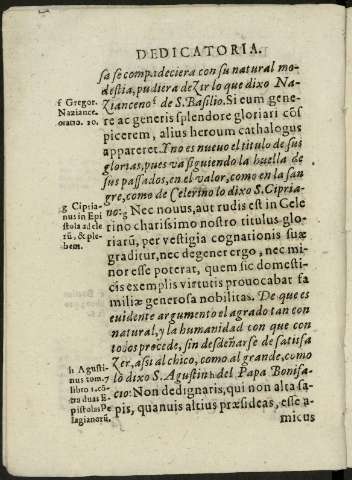 DEDICATORIA.
sa se compadeciera con su natural mo-
destia, pudiera deZir lo que dixo Na-
zianceno f de S. Basilio. Si eum gene-
re ac generis splendore gloriari cõs
picerem, alius heroum cathalogus
appareret. Y no es nueuo el titulo de sus
glorias, pues va siguiendo la huella de
sus passados, en el valor, como en la san
gre, como de Celerino lo dixo S. Cipria-
no: g Nec nouus, aut rudis est in Cele
rino charissimo nostro titulus glo-
riarũ, per vestigia cognationis suæ
graditur, nec degener ergo, nec mi
nor esse poterat, quem sic domesti-
cis exemplis virtutis prouocabat fa
miliæ generosa nobilitas. De que es
euidente argumento el agrado tan con
natural, y la humanidad con que con
todos procede, sin desdeñarse de satisfa
Zer, assi al chico, como al grande, como
lo dixo S. Agustin h del Papa Bonifa-
cio: Non dedignaris, qui non alta sa-
pis, quanuis altius præsideas, esse a-
micus
f Gregor.
Naziance.
oratio. 20.
g Cipria-
nus in Epi
stola ad cle
rũ, & ple-
bem.
h Agusti-
nus tom. 7
libro 1. cõ-
tra duas E-
pistolas Pe
lagianorũ.